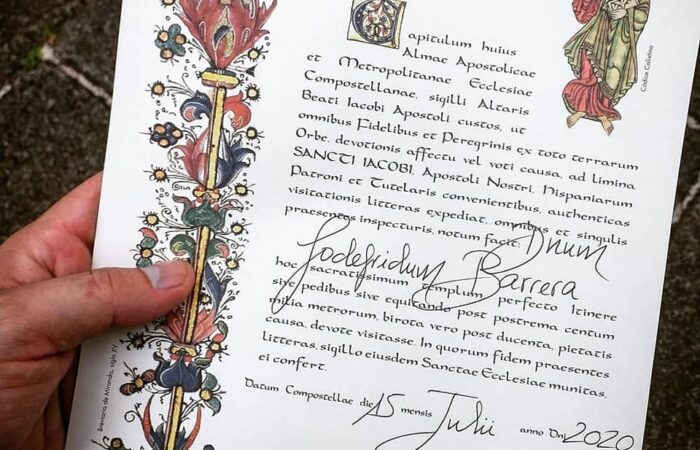 Capitulum huius
Almae Apostolicae
et Metropolitanae Ecclesiae
Compostellanae, sigilli Altaris
Beati Iacobi Apostoli custos, ut
omnibus Fidelibus et Peregrinis ex toto terrarum
Orbe, devotionis affectu vel voti causa, ad limina
SANCTI IACOBI, Apostoli Nostri, Hispaniarum
Patroni et Tutelaris convenientibus, authenticas
visitationis litteras expediat, omnibus et singulis
praesentes inspecturis, notum facit: Dnum
Godefridum Barrera
hoc sacratissimum templum, perfecto Itinere
sive pedibus sive equitando post postrema centum
milia metrorum, birota vero post ducenta, pietatis
causa, devote visitasse. In quorum fidem praesentes
litteras, sigillo eiusdem Sanctae Ecclesiae munitas,
ei confert.
Datum Compostellae die 15 mensis Julii anno Dni 2020
Breviario de Miranda, siglo XV
Códice Calixtino